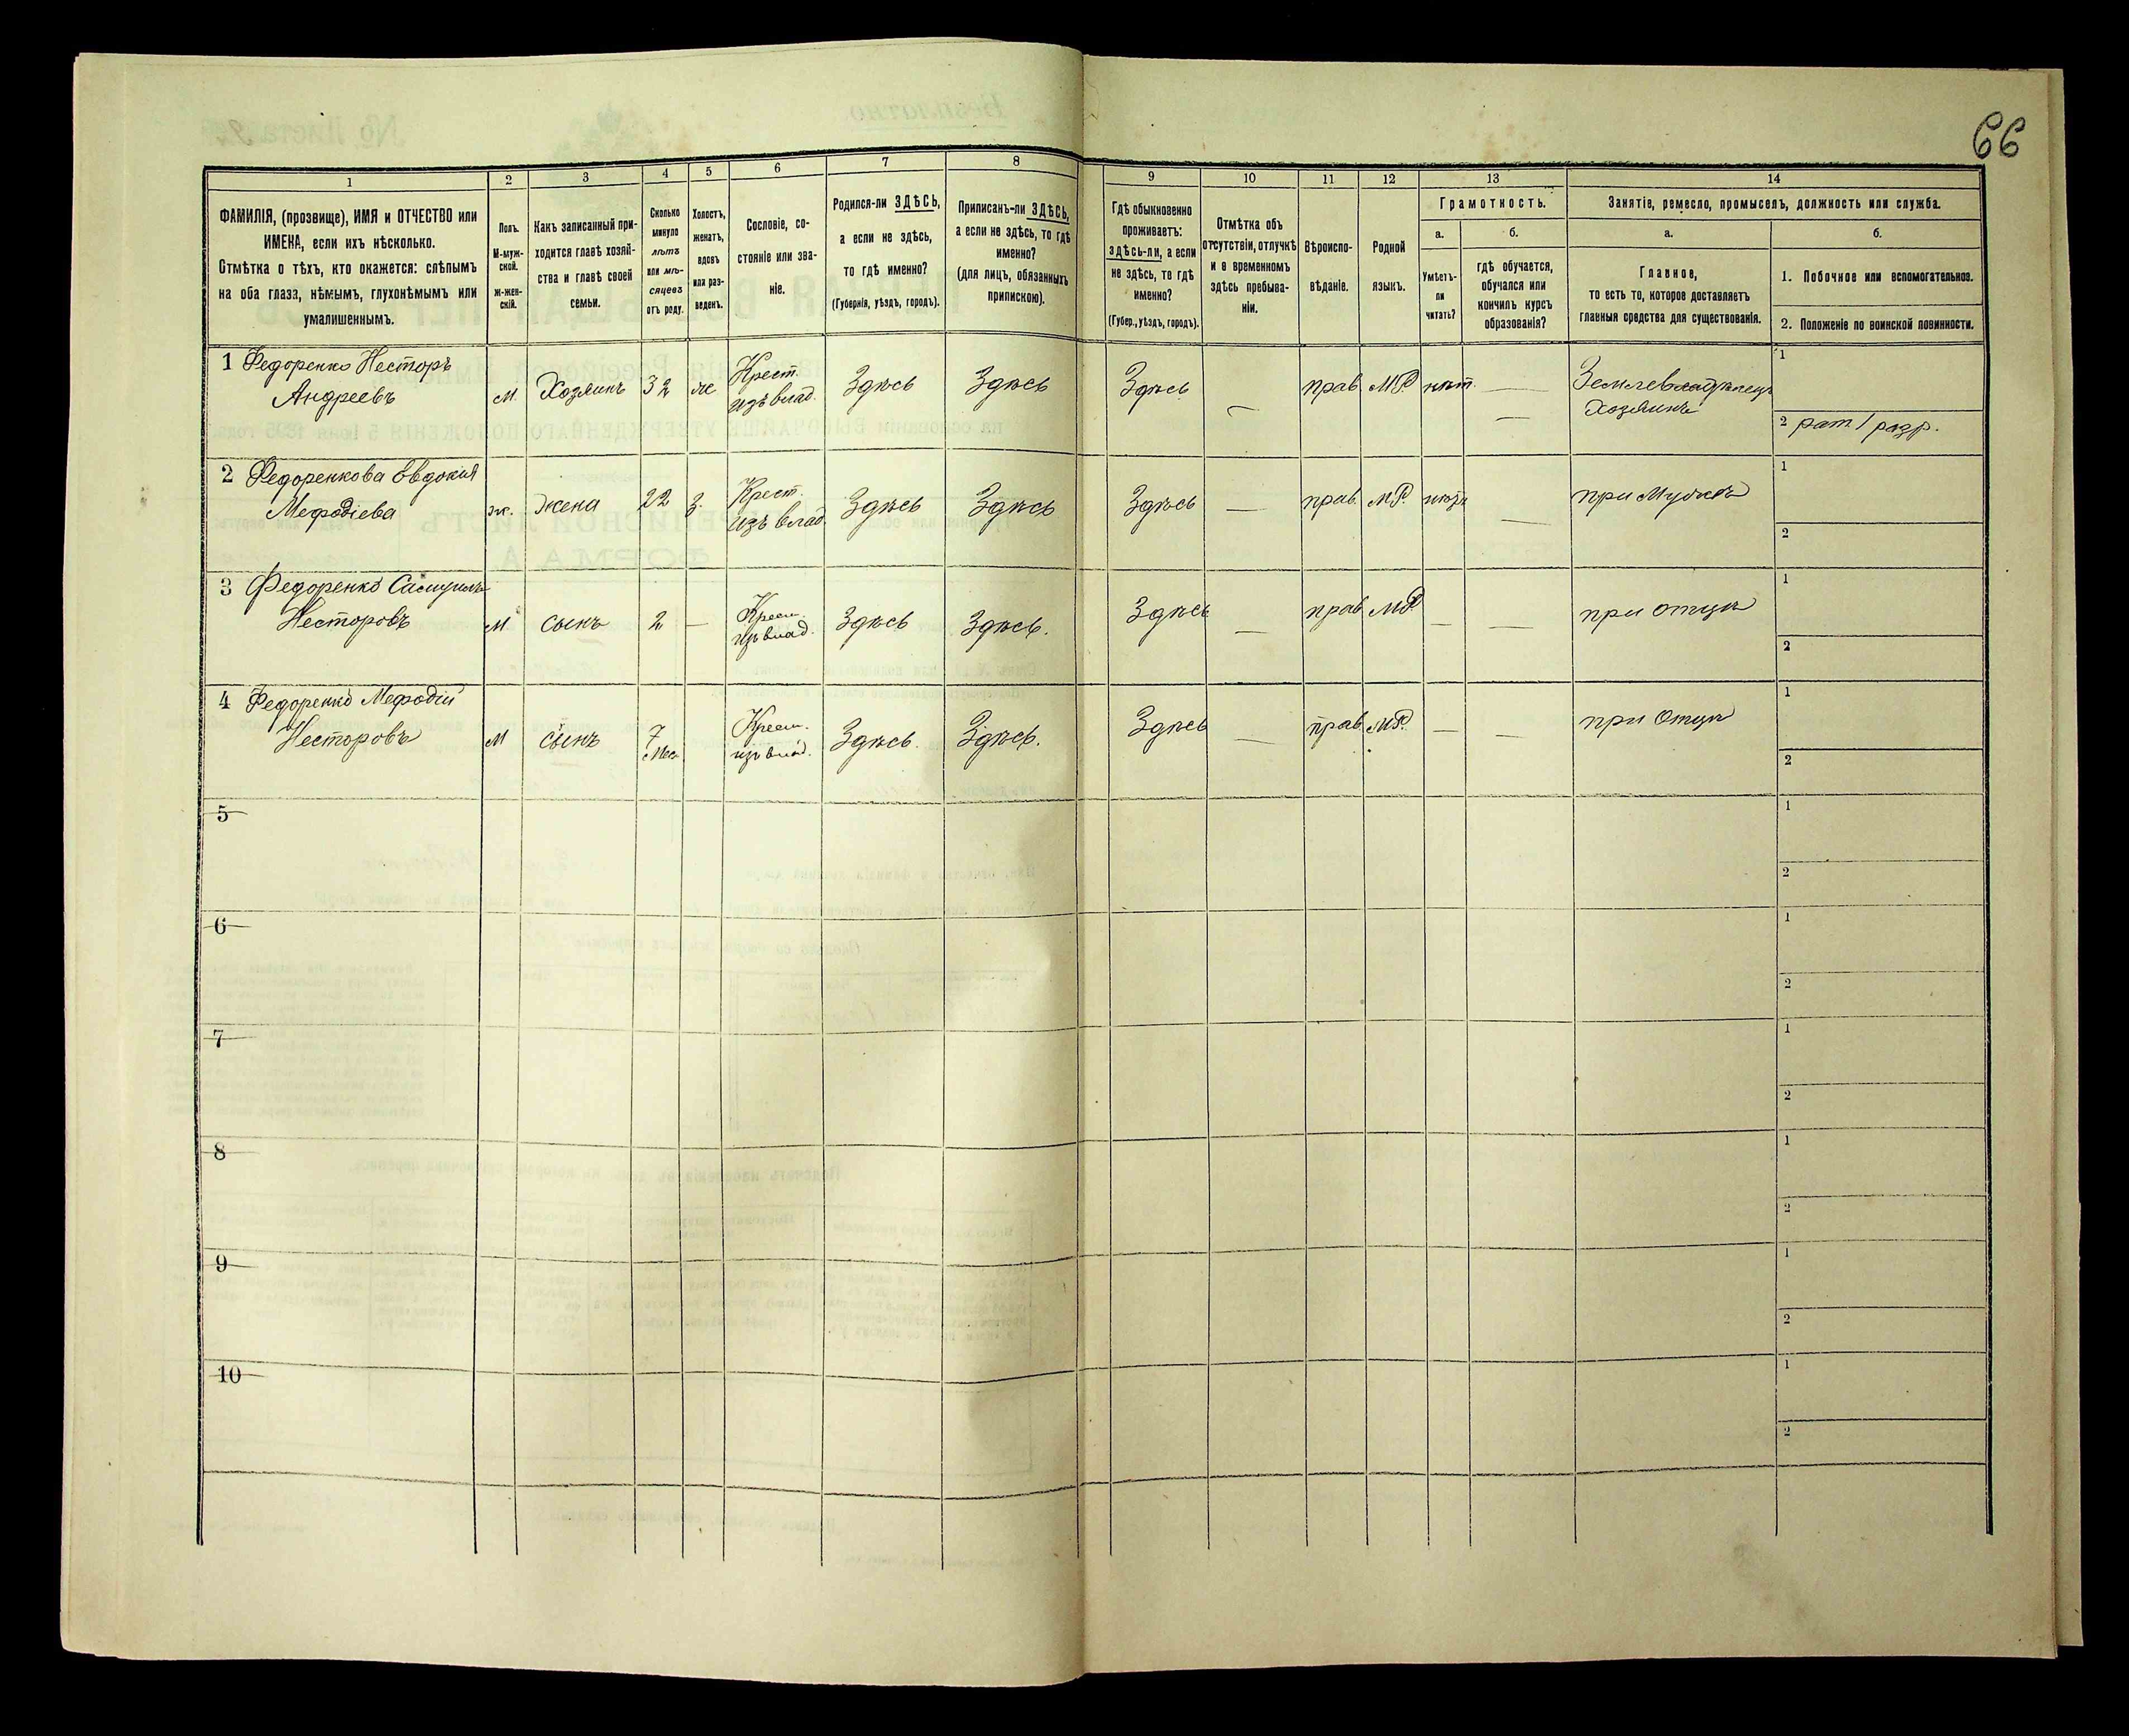 66
1
2
3
4
5
6
7
8
9
10
11
12
13
14
ФАМИЛІЯ, (прозвище), ИМЯ и ОТЧЕСТВО или
ИМЕНА, если ихъ нѣсколько.
Отмѣтка о тѣхъ, кто окажется: слѣпымъ
на оба глаза, нѣмымъ, глухонѣмымъ или
умалишеннымъ.
Полъ.
М-муж-
ской.
Ж-жен-
скій.
Какъ записанный при-
ходится главѣ хозяй-
ства и главѣ своей
семьи.
Сколько
минуло
лѣтъ
или мѣ-
сяцевъ
отъ роду.
Холостъ,
женатъ,
вдовъ
или раз-
веденъ.
Сословіе, со-
стояніе или зва-
ніе.
Родился-ли ЗДѢСЬ,
а если не здѣсь,
то гдѣ именно?
(Губернія, уѣздъ, городъ).
Приписанъ-ли ЗДѢСЬ,
а если не здѣсь, то гдѣ
именно?
(для лицъ, обязанныхъ
припискою).
Гдѣ обыкновенно
проживаетъ:
ЗДѢСЬ-ли, а если
не здѣсь, то гдѣ
именно?
(Губер., уѣздъ, городъ).
Отмѣтка объ
отсутствіи, отлучкѣ
и о временномъ
здѣсь пребыва-
ніи.
Вѣроиспо-
вѣданіе.
Родной
языкъ.
Грамотность.
а.
Умѣетъ-
ли
читать?
б.
гдѣ обучается,
обучался или
кончилъ курсъ
образованія?
Занятіе, ремесло, промыселъ, должность или служба.
а.
Главное,
то есть то, которое доставляетъ
главныя средства для существованія.
б.
1. Побочное или вспомогательное.
2. Положеніе по воинской повинности.
1 Федоренко Несторъ
Андреевъ
м.
Хозяинъ
32
ж
Крест.
изъ влад.
Здѣсь
Здѣсь
Здѣсь
—
прав.
МР.
нѣт.
—
—
Землевладѣлецъ
Хозяинъ
1
2 рат. 1 разр.
2 Федоренкова Евдокия
Мефодіева
ж.
жена
22
з.
Крест.
изъ влад.
Здѣсь
Здѣсь
Здѣсь
—
прав.
МР.
—
при Мужѣ
1
2
3 Федоренко Самуилъ
Несторовъ
м
сынъ
2
—
Крест.
изъ влад.
Здѣсь
Здѣсь.
Здѣсь
—
прав
МР
—
—
при отцѣ
1
2
4 Федоренко Мефодій
Несторовъ
м
сынъ
7
мес
Крест.
изъ влад.
Здѣсь.
Здѣсь.
Здѣсь
—
прав.
МР.
—
—
при Отцѣ
1
2
5
1
2
6
1
2
7
1
2
8
1
2
9
1
2
10
1
2